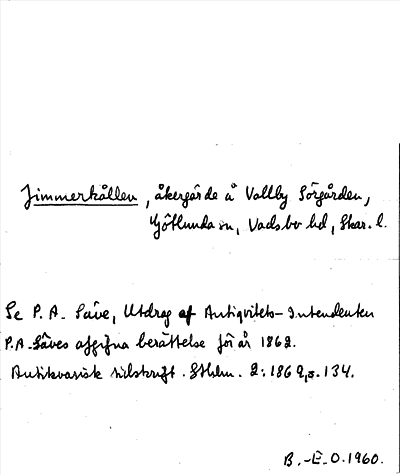 Jimmerkållen, åkergärde å Vallby Sörgården,
Götlunda sn, Vadsbo hd, Skar. l.
Se P. A. Säve, Utdrag af Antiqvitets-Intendenten
P.A. Säves afgifna berättelse för år 1862.
Antikvarisk tidskrift. Sthlm. 2: 1869, s. 134.
B.-E. O. 1960.